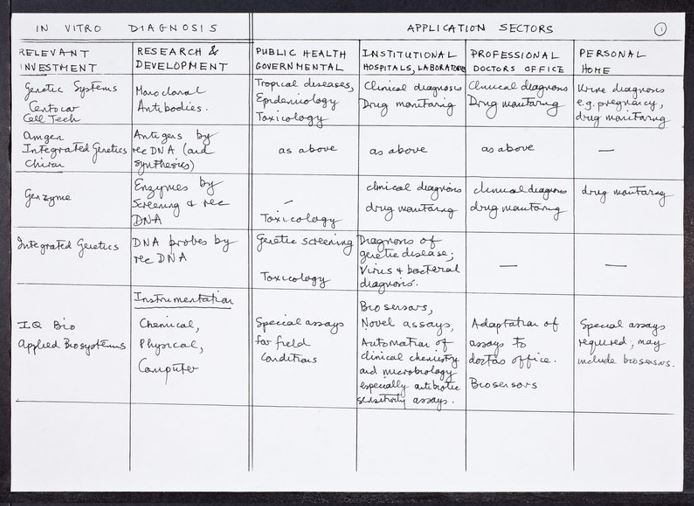 IN VITRO DIAGNOSIS
APPLICATION SECTORS
1
RELEVANT
INVESTMENT
RESEARCH &
DEVELOPMENT
PUBLIC HEALTH
GOVERNMENTAL
INSTITUTIONAL
HOSPITALS, LABORATORIES
PROFESSIONAL
DOCTORS OFFICE
PERSONAL
HOME
Genetic Systems
Centocor
Cell Tech
Monoclonal
Antibodies.
Tropical diseases,
Epidemiology
Toxicology
Clinical diagnosis
Drug monitoring
Clinical diagnosis
Drug monitoring
Urine diagnoses
e.g. pregnancy,
drug monitoring
Amgen
Integrated Genetics
Chiron
Antigens by
rec DNA (and
synthesis)
as above
as above
as above
—
Genzyme
Enzymes by
Screening & rec
DNA
—
Toxicology
clinical diagnosis
drug monitoring
clinical diagnosis
drug monitoring
drug monitoring
Integrated Genetics
DNA probes by
rec DNA
Genetic screening
Toxicology
Diagnosis of
genetic disease;
Virus & bacterial
diagnosis.
—
—
Instrumentation
IQ Bio
Applied Biosystems
Chemical,
Physical,
Computer
Special assays
for field
conditions
Biosensors,
Novel assays,
Automation of
clinical chemistry
and microbiology
especially antibiotic
sensitivity assays.
Adaptation of
assays to
doctors office.
Biosensors
Special assays
required, may
include biosensors.